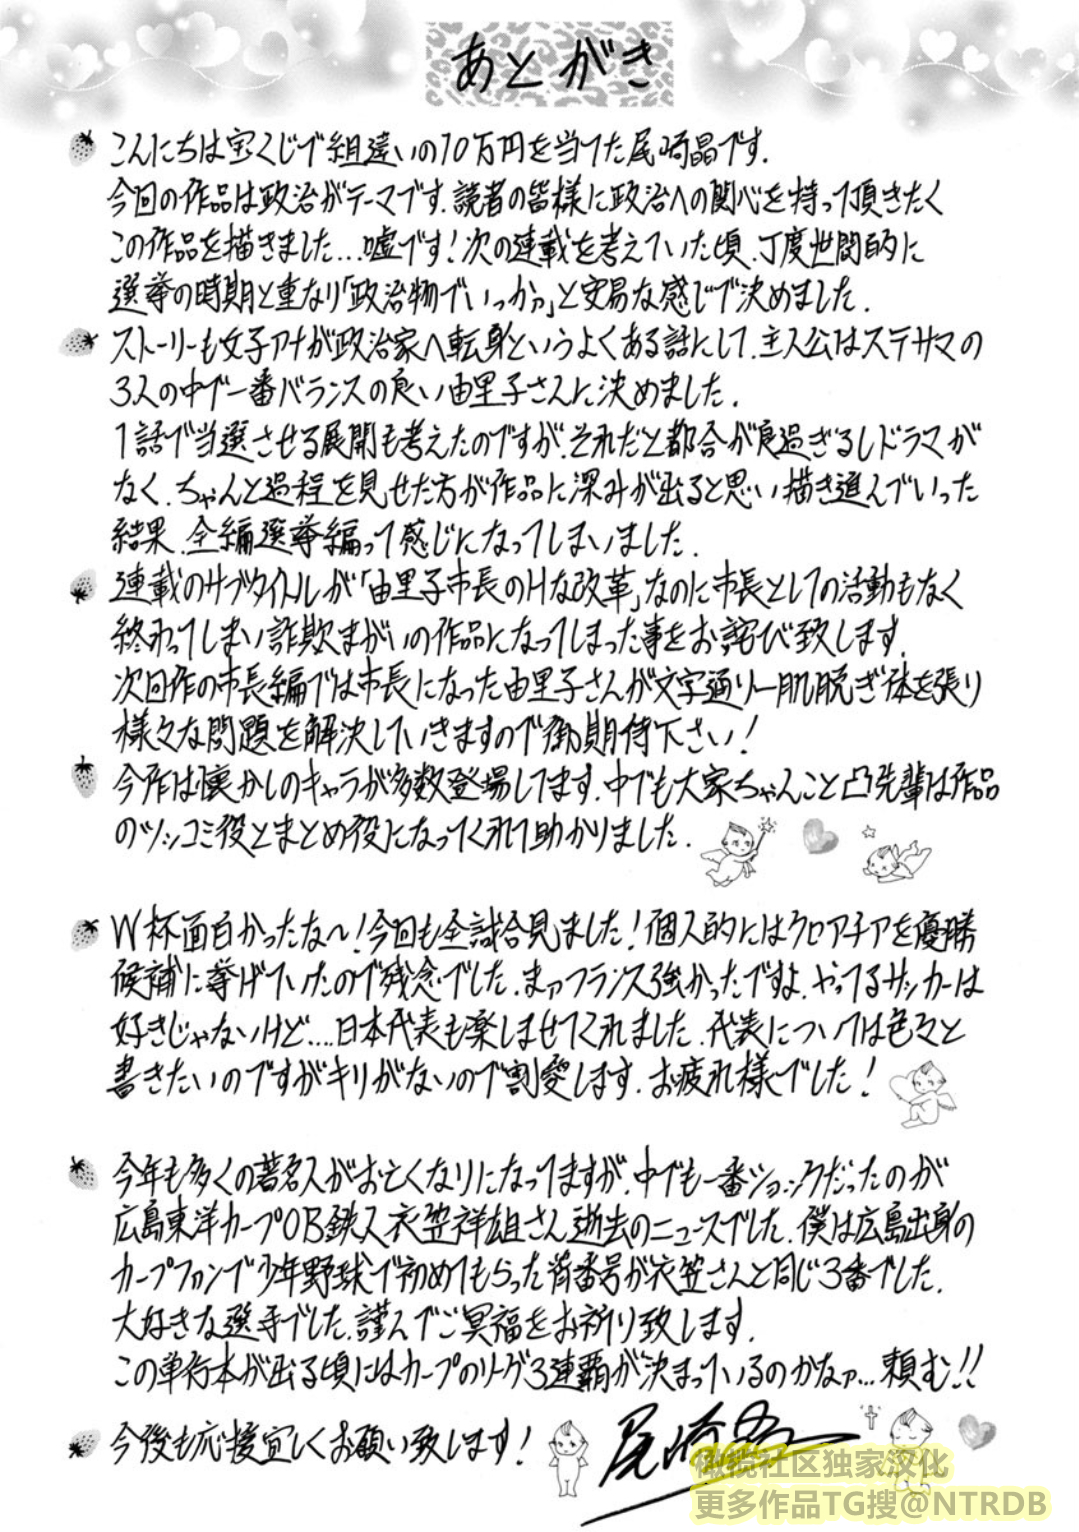 あとがき
こんにちは宝くじで組違いの10万円を当てた尾崎晶です.
今回の作品は政治がテーマです.読者の皆様に政治への関心を持って頂きたく
この作品を描きました...嘘です!次の連載を考えていた頃、丁度世間的に
選挙の時期と重なり「政治物でいっか。」と安易な感じで決めました.
ストーリーも女子アナが政治家へ転身というよくある話にして、主人公はステサマの
3人の中で一番バランスの良い由里子さんに決めました.
1話で当選させる展開も考えたのですが、それだと都合が良過ぎるしドラマが
なく、ちゃんと過程を見せた方が作品に深みが出ると思い描き進んでいった
結果、全編選挙編って感じになってしまいました.
連載のサブタイトルが「由里子市長のHな改革」なのに市長としての活動もなく
終わってしまい詐欺まがいの作品になってしまった事をお詫び致します.
次回作の市長編では市長になった由里子さんが文字通り一肌脱ぎ体を張り
様々な問題を解決していきますので御期待下さい!
今作は懐かしのキャラが多数登場してます.中でも大家ちゃんこと凸先輩は作品
のツッコミ役とまとめ役になってくれて助かりました.
W杯面白かったな〜!今回も全試合見ました!個人的にはクロアチアを優勝
候補に挙げていたので残念でした.まァフランス強かったですよ.やってるサッカーは
好きじゃないけど....日本代表も楽しませてくれました.代表については色々と
書きたいのですがキリがないので割愛します.お疲れ様でした!
今年も多くの著名人がお亡くなりになってますが、中でも一番ショックだったのが
広島東洋カープOB鉄人衣笠祥雄さん逝去のニュースでした.僕は広島出身の
カープファンで少年野球で初めてもらった背番号が衣笠さんと同じ3番でした.
大好きな選手でした.謹んでご冥福をお祈り致します.
この単行本が出る頃にはカープのリーグ3連覇が決まっているのかなァ...頼む!!
今後も応援宜しくお願い致します!
尾崎晶
橄榄社区独家汉化
更多作品TG搜@NTRDB